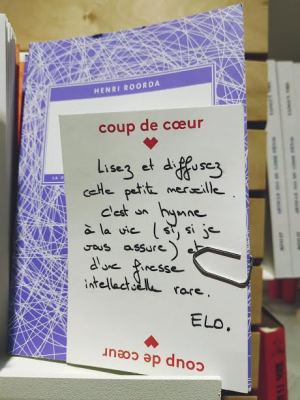 HENRI ROORDA
coup de cœur
Lisez et diffusez
cette petite merveille.
c'est un hymne
à la vie (si, si je
vous assure) et
d'une finesse
intellectuelle rare.
ELO.
coup de cœur